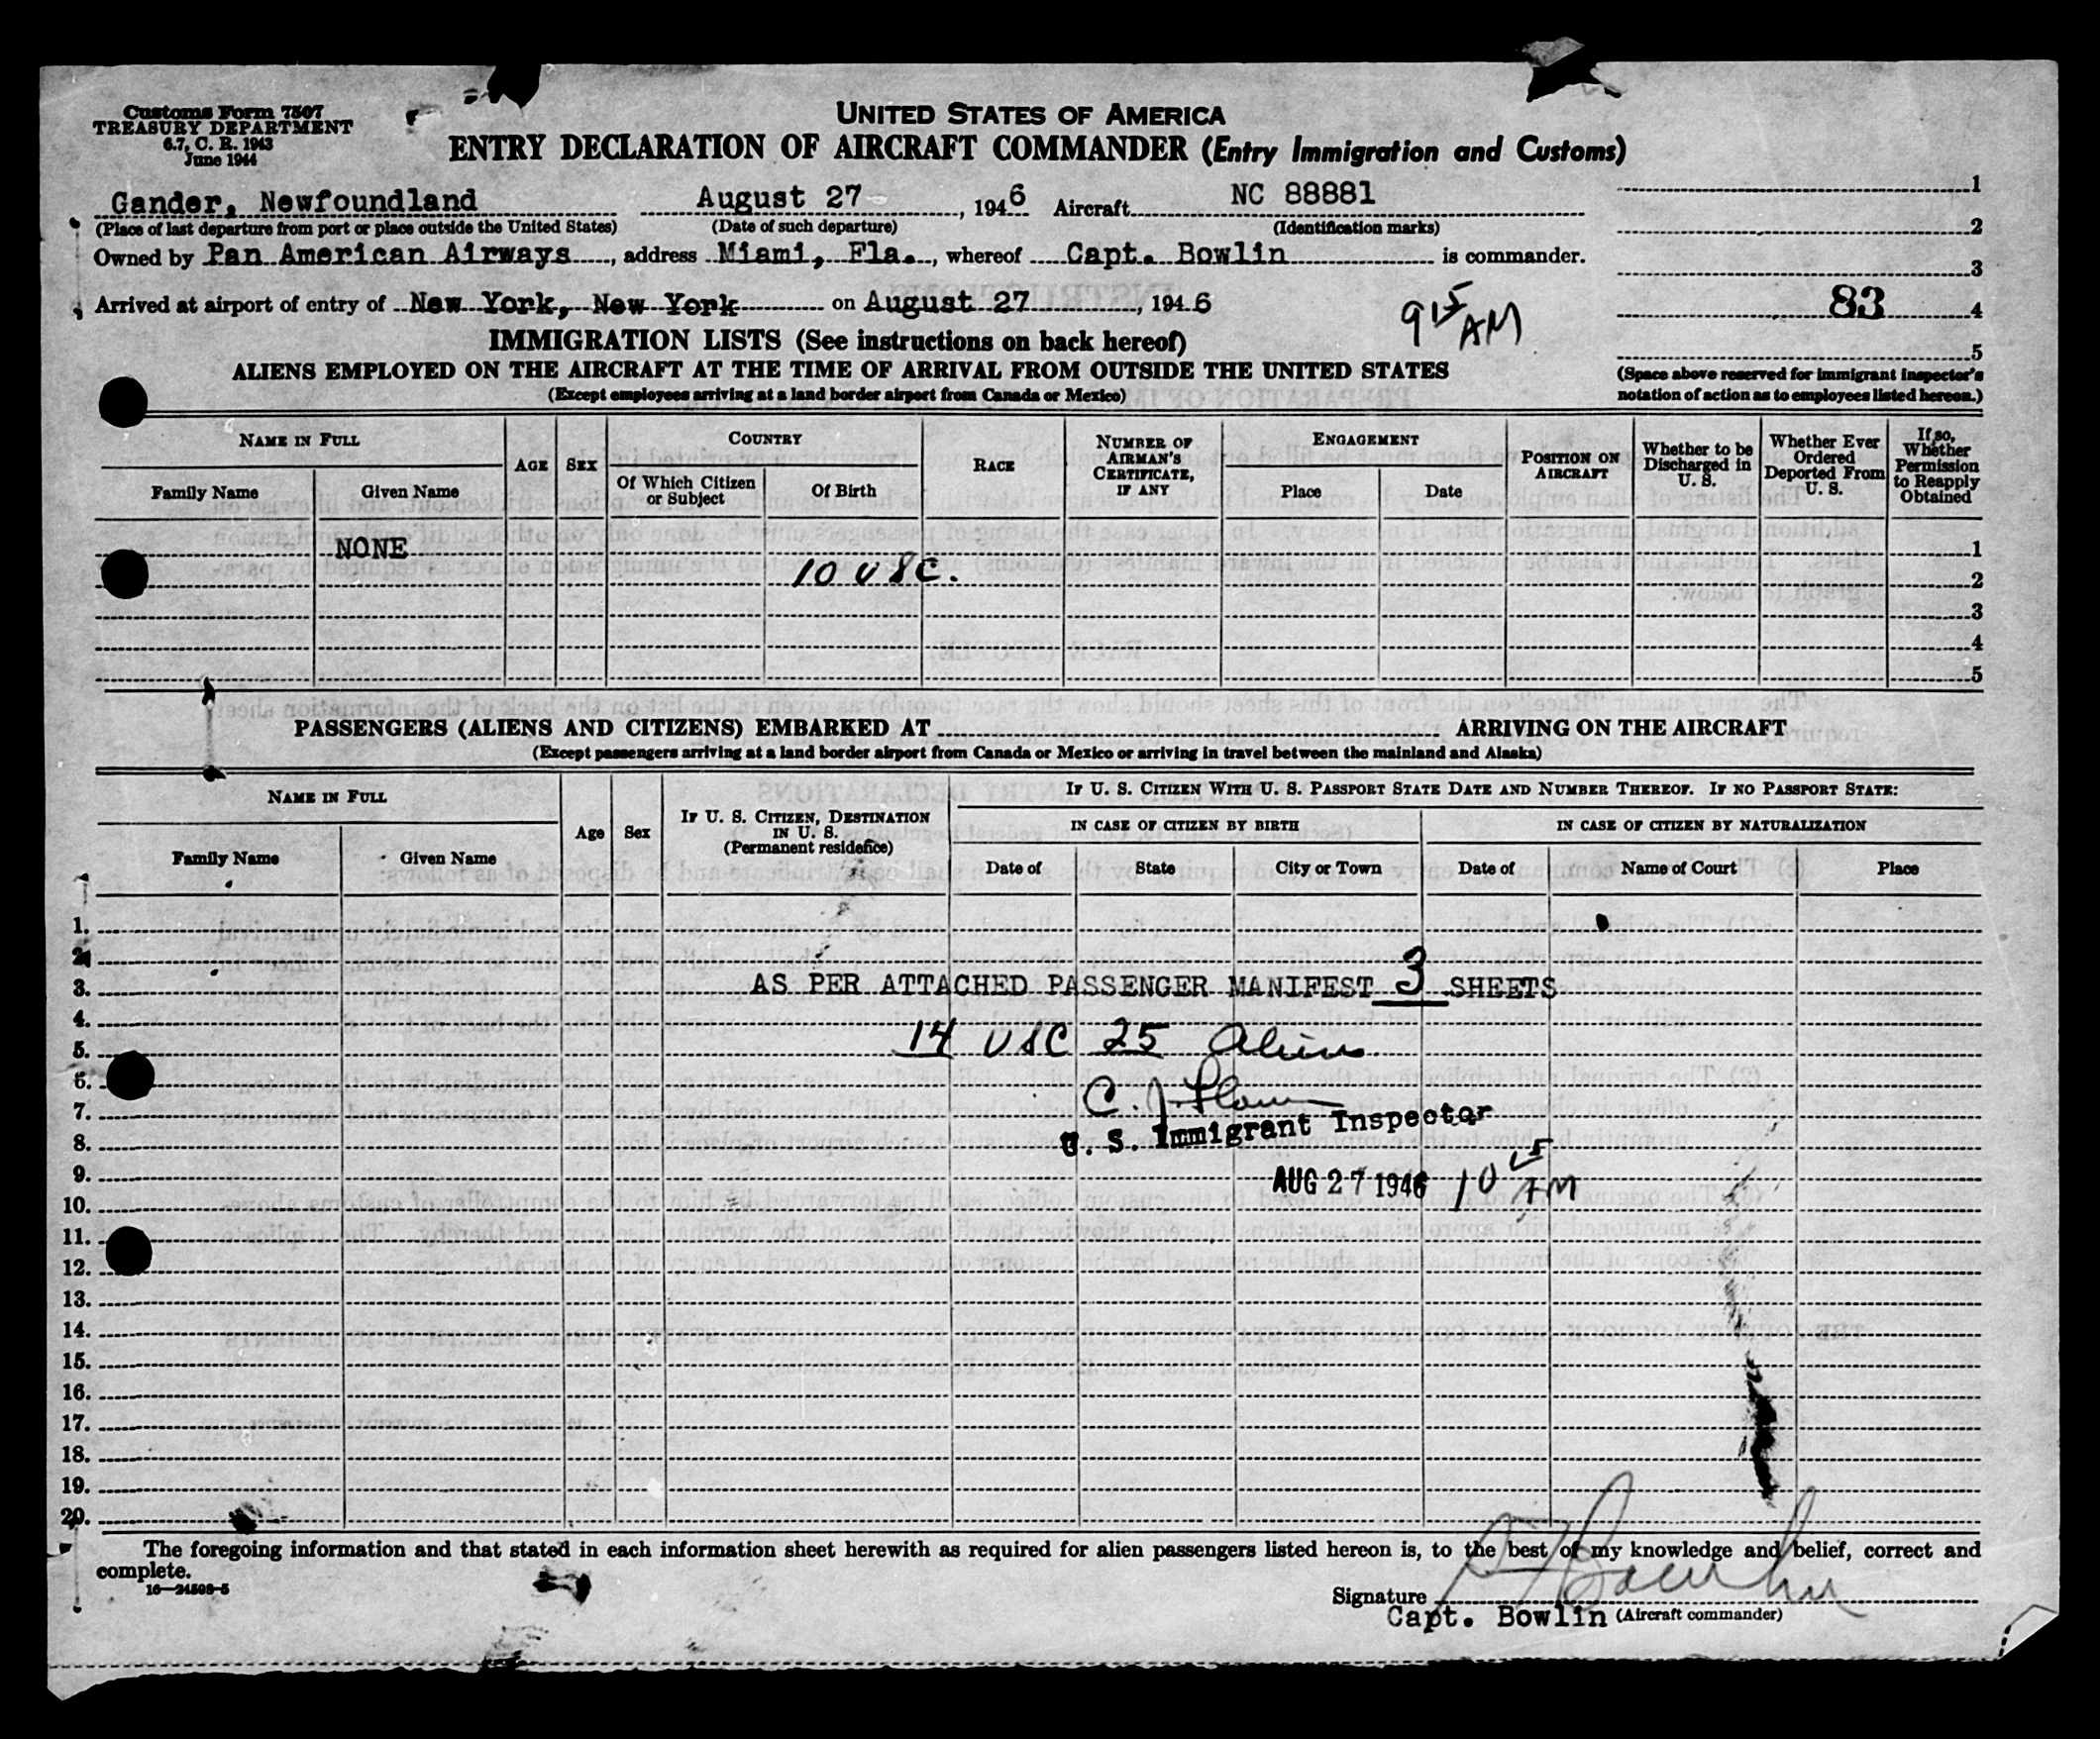 Customs Form 7507
TREASURY DEPARTMENT
6.7, C. R. 1943
June 1944
UNITED STATES OF AMERICA
ENTRY DECLARATION OF AIRCRAFT COMMANDER (Entry Immigration and Customs)
Gander, Newfoundland August 27, 1946 Aircraft NC 88881
(Place of last departure from port or place outside the United States) (Date of such departure) (Identification marks)
Owned by Pan American Airways, address Miami, Fla., whereof Capt. Bowlin is commander.
Arrived at airport of entry of New York, New York on August 27, 1946
9 15 AM
1
2
3
83 4
5
(Space above reserved for immigrant inspector's
notation of action as to employees listed hereon.)
IMMIGRATION LISTS (See instructions on back hereof)
ALIENS EMPLOYED ON THE AIRCRAFT AT THE TIME OF ARRIVAL FROM OUTSIDE THE UNITED STATES
(Except employees arriving at a land border airport from Canada or Mexico)
NAME IN FULL
Family Name
Given Name
AGE
SEX
COUNTRY
Of Which Citizen
or Subject
Of Birth
RACE
NUMBER OF
AIRMAN'S
CERTIFICATE,
IF ANY
ENGAGEMENT
Place
Date
POSITION ON
AIRCRAFT
Whether to be
Discharged in
U. S.
Whether Ever
Ordered
Deported From
U. S.
If so,
Whether
Permission
to Reapply
Obtained
NONE 1
10 USC. 2
3
4
5
PASSENGERS (ALIENS AND CITIZENS) EMBARKED AT ARRIVING ON THE AIRCRAFT
(Except passengers arriving at a land border airport from Canada or Mexico or arriving in travel between the mainland and Alaska)
NAME IN FULL
Family Name
Given Name
Age
Sex
IF U. S. CITIZEN, DESTINATION
IN U. S.
(Permanent residence)
IF U. S. CITIZEN WITH U. S. PASSPORT STATE DATE AND NUMBER THEREOF. IF NO PASSPORT STATE:
IN CASE OF CITIZEN BY BIRTH
IN CASE OF CITIZEN BY NATURALIZATION
Date of
State
City or Town
Date of
Name of Court
Place
1.
2.
3. AS PER ATTACHED PASSENGER MANIFEST 3 SHEETS
4.
5. 14 USC 25 Aliens
6. C. J.
7. U. S. Immigrant Inspector
8.
9. AUG 27 1946 10 AM
10.
11.
12.
13.
14.
15.
16.
17.
18.
19.
20.
The foregoing information and that stated in each information sheet herewith as required for alien passengers listed hereon is, to the best of my knowledge and belief, correct and
complete.
16—24508-5
Signature Bowlin
Capt. Bowlin (Aircraft commander)